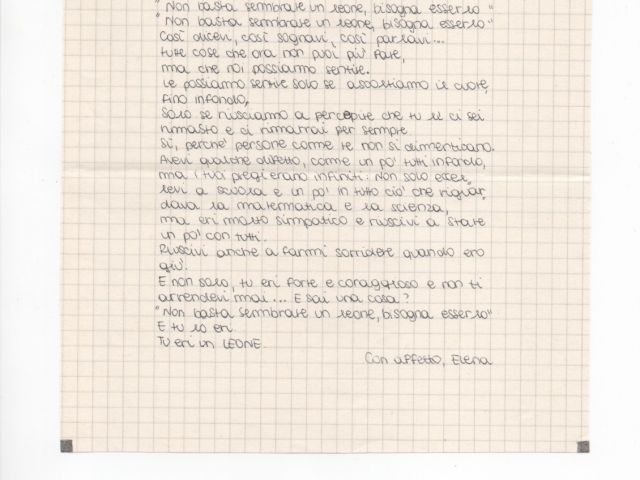 "Non basta sembrare un leone, bisogna esserlo"
"Non basta sembrare un leone, bisogna esserlo"
Così dicevi, così sognavi, così parlavi...
tute cose che ora non puoi più fare,
ma che noi possiamo sentire.
Le possiamo sentire solo se ascoltiamo il cuore,
fino infondo,
Solo se riusciamo a percepire che tu lì ci sei
rimasto e ci rimarrai per sempre.
Sì, perchè persone come te non si dimenticano.
Avevi qualche difetto, come un pò tutti infondo,
ma i tuoi pregi erano infiniti. Non solo eccel
levi a scuola e un pò in tutto ciò che riguar
dava la matematica e la scienza,
ma eri molto simpatico e riuscivi a stare
un pò con tutti.
Riuscivi anche a farmi sorridere quando ero
giù.
E non solo, tu eri forte e coraggioso e non ti
arrendevi mai... E sai una cosa?
"Non basta sembrare un leone, bisogna esserlo"
E tu lo eri.
TU eri un LEONE.
Con affetto, Elena